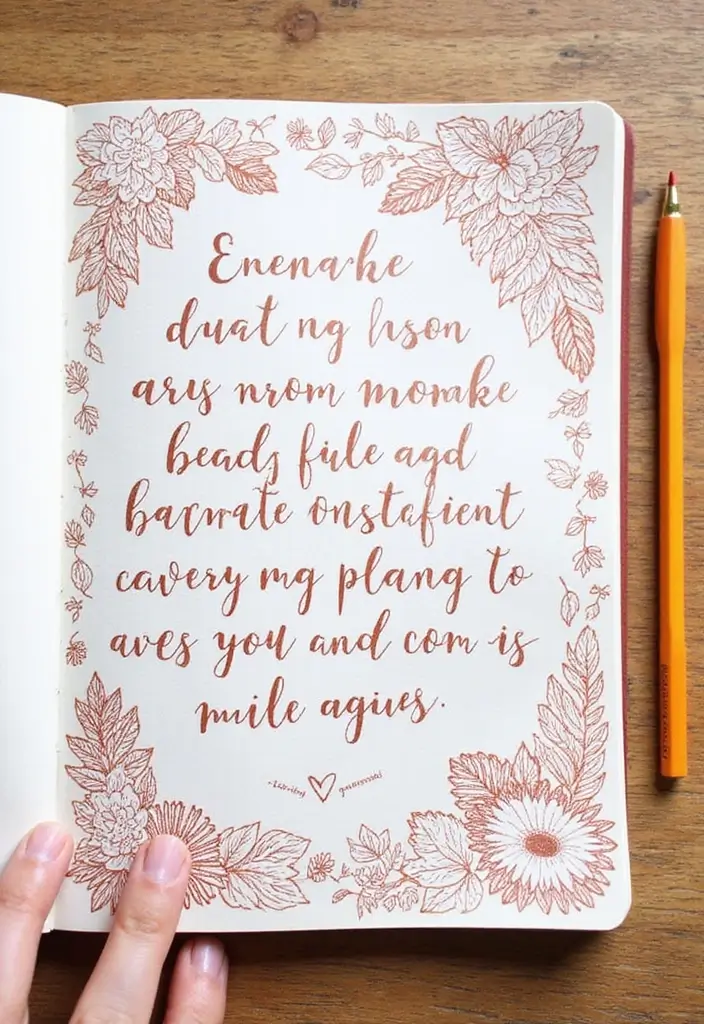 Enenarhe
duat ng hson
arys nrom momake
beads fule agd
bacmrate onstafient
cavery mg plang to
aves you and com is
mule agiues.